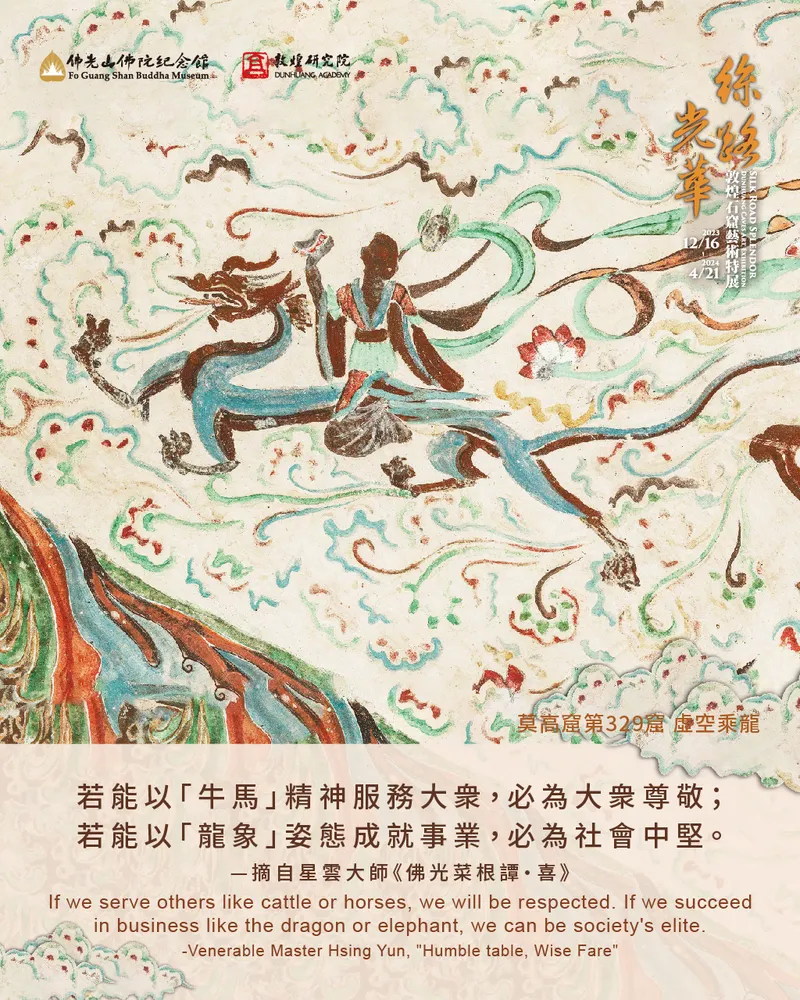 佛光山佛陀紀念館
Fo Guang Shan Buddha Museum
敦煌研究院
DUNHUANG ACADEMY
絲路
光華
SILK ROAD SPLENDOR
DUNHUANG CAVES ART EXHIBITION
敦煌石窟藝術特展
2023
12/16
-
2024
4/21
莫高窟第329窟 虛空乘龍
若能以「牛馬」精神服務大眾,必為大眾尊敬;
若能以「龍象」姿態成就事業,必為社會中堅。
—摘自星雲大師《佛光菜根譚•喜》
If we serve others like cattle or horses, we will be respected. If we succeed
in business like the dragon or elephant, we can be society's elite.
-Venerable Master Hsing Yun, "Humble table, Wise Fare"